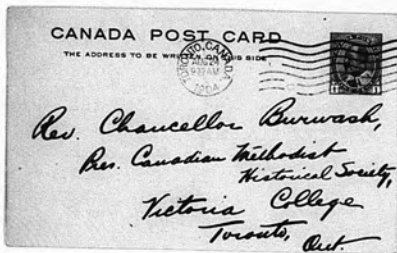 CANADA POST CARD
THE ADDRESS TO BE WRITTEN ON THIS SIDE
TORONTO, CANADA
AUG 24
1904
Rev. Chancellor Burwash,
Pres. Canadian Methodist
Historical Society,
Victoria College
Toronto,
Ont.